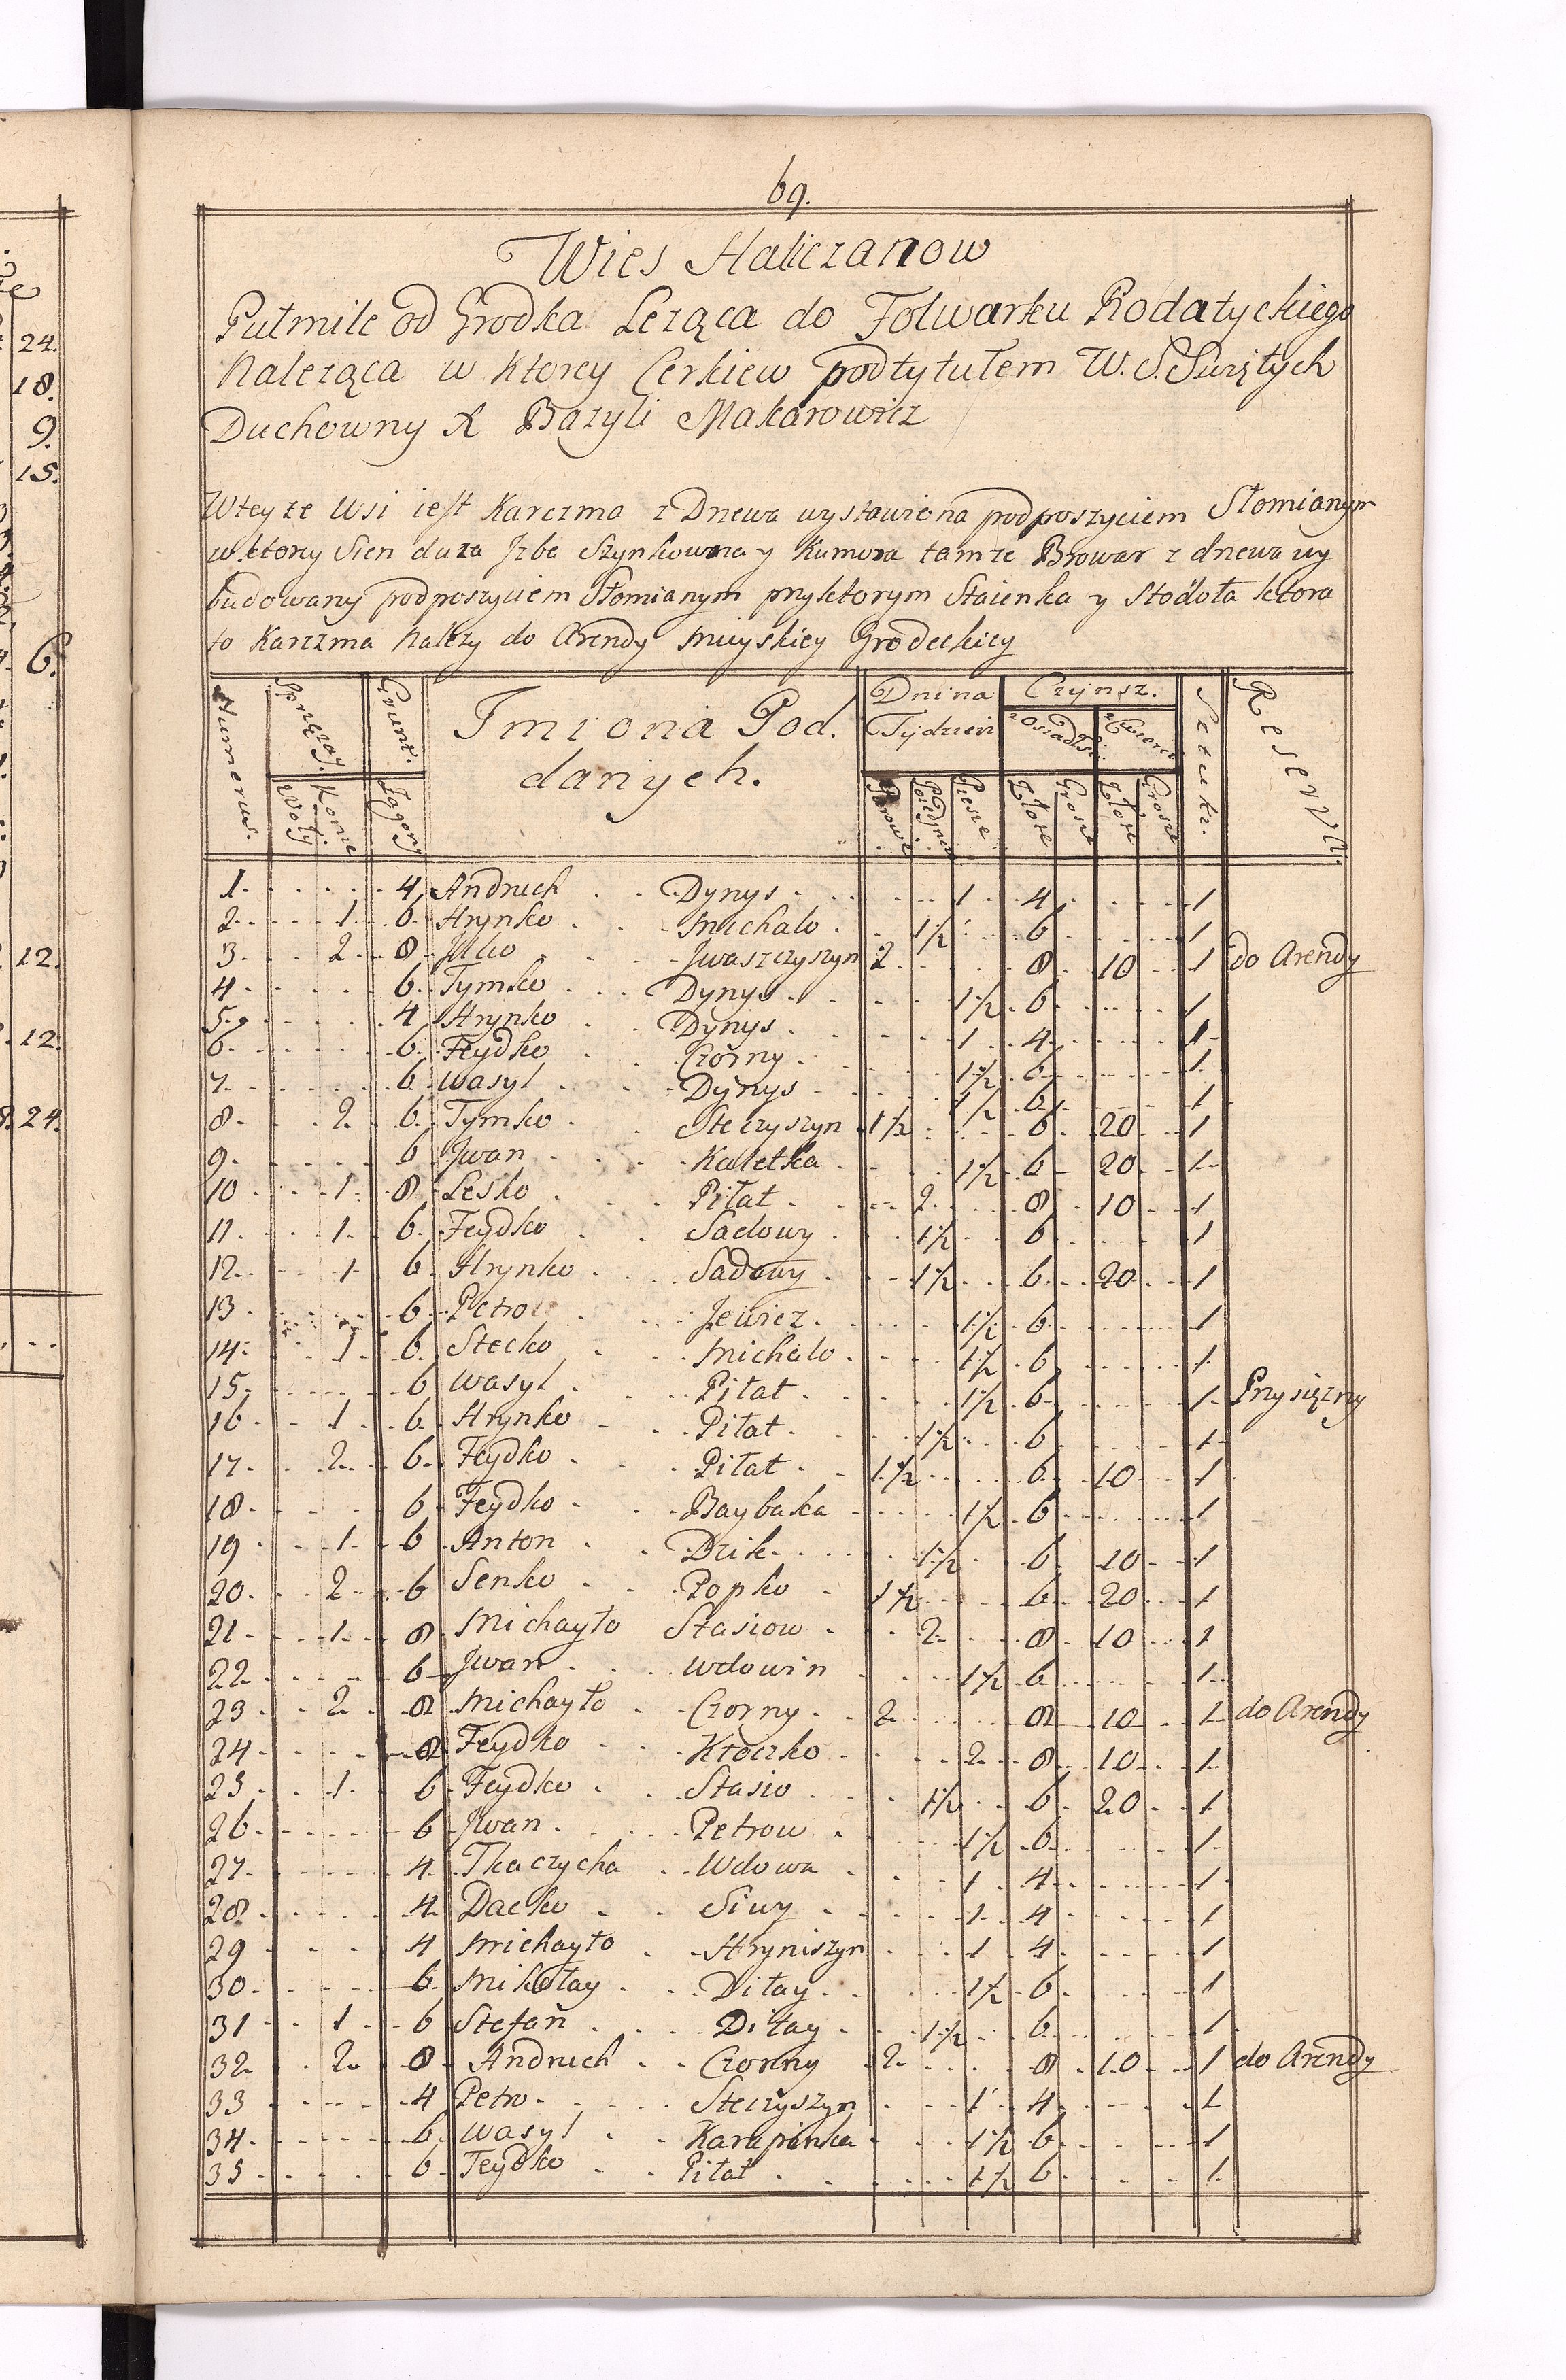 69.
Wies Haliczanow
Pułmile od Grodka Leząca do Folwarku Rodatyckiego
Nalezaca w Ktorey Cerkiew pod tytułem W. S. Swiętych
Duchowny X Bazyli Makarowicz
Wteyze Wsi iest Karczma z Dnewa wystawiona pod poszyciem Słomianym
w ktorey Sien duza Jzba Szynkowna y Kumora tamze Browar z dnewa wy
budowany pod poszyciem Słomianym przyktorym Staienka y Stodoła ktora
to Karczma Nalezy do Arendy Mieyskiey Grodeckiey
Numerus. Sprzęzay. Grunt. Imiona Pod. Dnina Czynsz. Reservy
danych. Tydzień z Osiadł.
Woły Konne Jagony Parowe Pojedyncze Piesze Złote Grosze Złote Grosze
1. 4 Andruch Dynys 1 4 1
2. 1 6 Hrynko Michalo 1½ 6 1
3. 2 8 Ilko Jwaszczyszyn 2 8 10 1 do Arendy
4. 6 Tymko Dynys 1½ 6 1
5. 4 Hrynko Dynys 1 4 1
6. 6 Feydko Czorny 1½ 6 1
7. 6 Wasyl Dynys 1½ 6 1
8. 2 6 Tymko Steczyszyn 1½ 6 20 1
9. 6 Jwan Kaletka 1½ 6 20 1
10 1 8 Lesko Piłat 2 8 10 1
11. 1 6 Feydko Sadowy 1½ 6 1
12. 1 6 Hrynko Sadowy 1½ 6 20 1
13. 6 Petro Jewicz 1½ 6 1
14. 1 6 Stecko Michalo 1½ 6 1
15. 6 Wasyl Piłat 1½ 6 1 Przysięzny
16. 1 6 Hrynko Piłat 1½ 6 1
17. 2 6 Feydko Piłat 1½ 6 10 1
18. 6 Feydko Baybaka 1½ 6 1
19 1 6 Anton Dzik 1½ 6 10 1
20. 2 6 Senko Popko 1½ 6 20 1
21. 1 8 Michayło Stasiow 2 8 10 1
22. 6 Jwan Wdowin 1½ 6 1
23. 2 8 Michayło Czorny 2 8 10 1 do Arendy
24. 8 Feydko Kłoczko 2 8 10 1
25. 1 6 Feydko Stasio 1½ 6 20 1
26. 6 Jwan Petrow 1½ 6 1
27. 4 Tkaczycha Wdowa 1 4 1
28. 4 Dacko Siwy 1 4 1
29 4 Michayło Hryniszyn 1 4 1
30. 6 Mikołay Diłay 1½ 6 1
31 1 6 Stefan Diłay 1½ 6 1
32 2 8 Andruch Czorny 2 8 10 1 do Arendy
33 4 Petro Steczyszyn 1 4 1
34. 6 Wasyl Karapinka 1½ 6 1
35. 6 Feydko Piłat 1½ 6 1
24.
18.
9.
15.
6.
12.
12.
24.